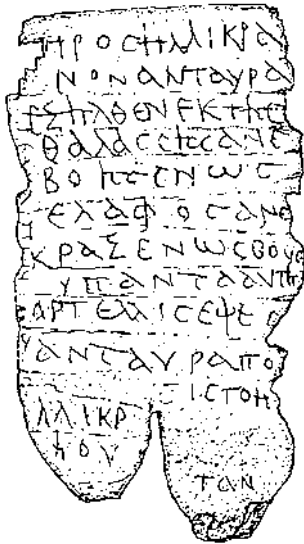 ΠΡΟϹΗΜΙΚΡΑ
ΝΟΝΑΝΤΑΥΡΑ
ΕΞΗΛΘΕΝΕΚΤΗϹ
ΘΑΛΑϹϹΗϹΑΝΕ
ΒΟΗϹΕΝΩϹ
ΕΛΑΦΟϹΑΝΕ
ΚΡΑΞΕΝΩϹΒΟΥϹ
ΥΠΑΝΤΑΑΥΤΗ
ΑΡΤΕΜΙϹΕΨΕ
ΑΝΤΑΥΡΑΠΟ
ΙϹΤΟΗ
ΜΙΚΡ
ΗΟΥ
ΤΑΝ